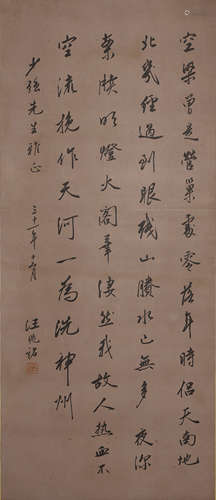 空梁曾是營巢處零落年時侶天南地
北幾經過到眼殘山賸水已無多夜深
案牘明燈火閣筆淒然我故人熱血不
空流挽作天河一為洗神州
少強先生雅正
三十一年十一月 汪兆銘